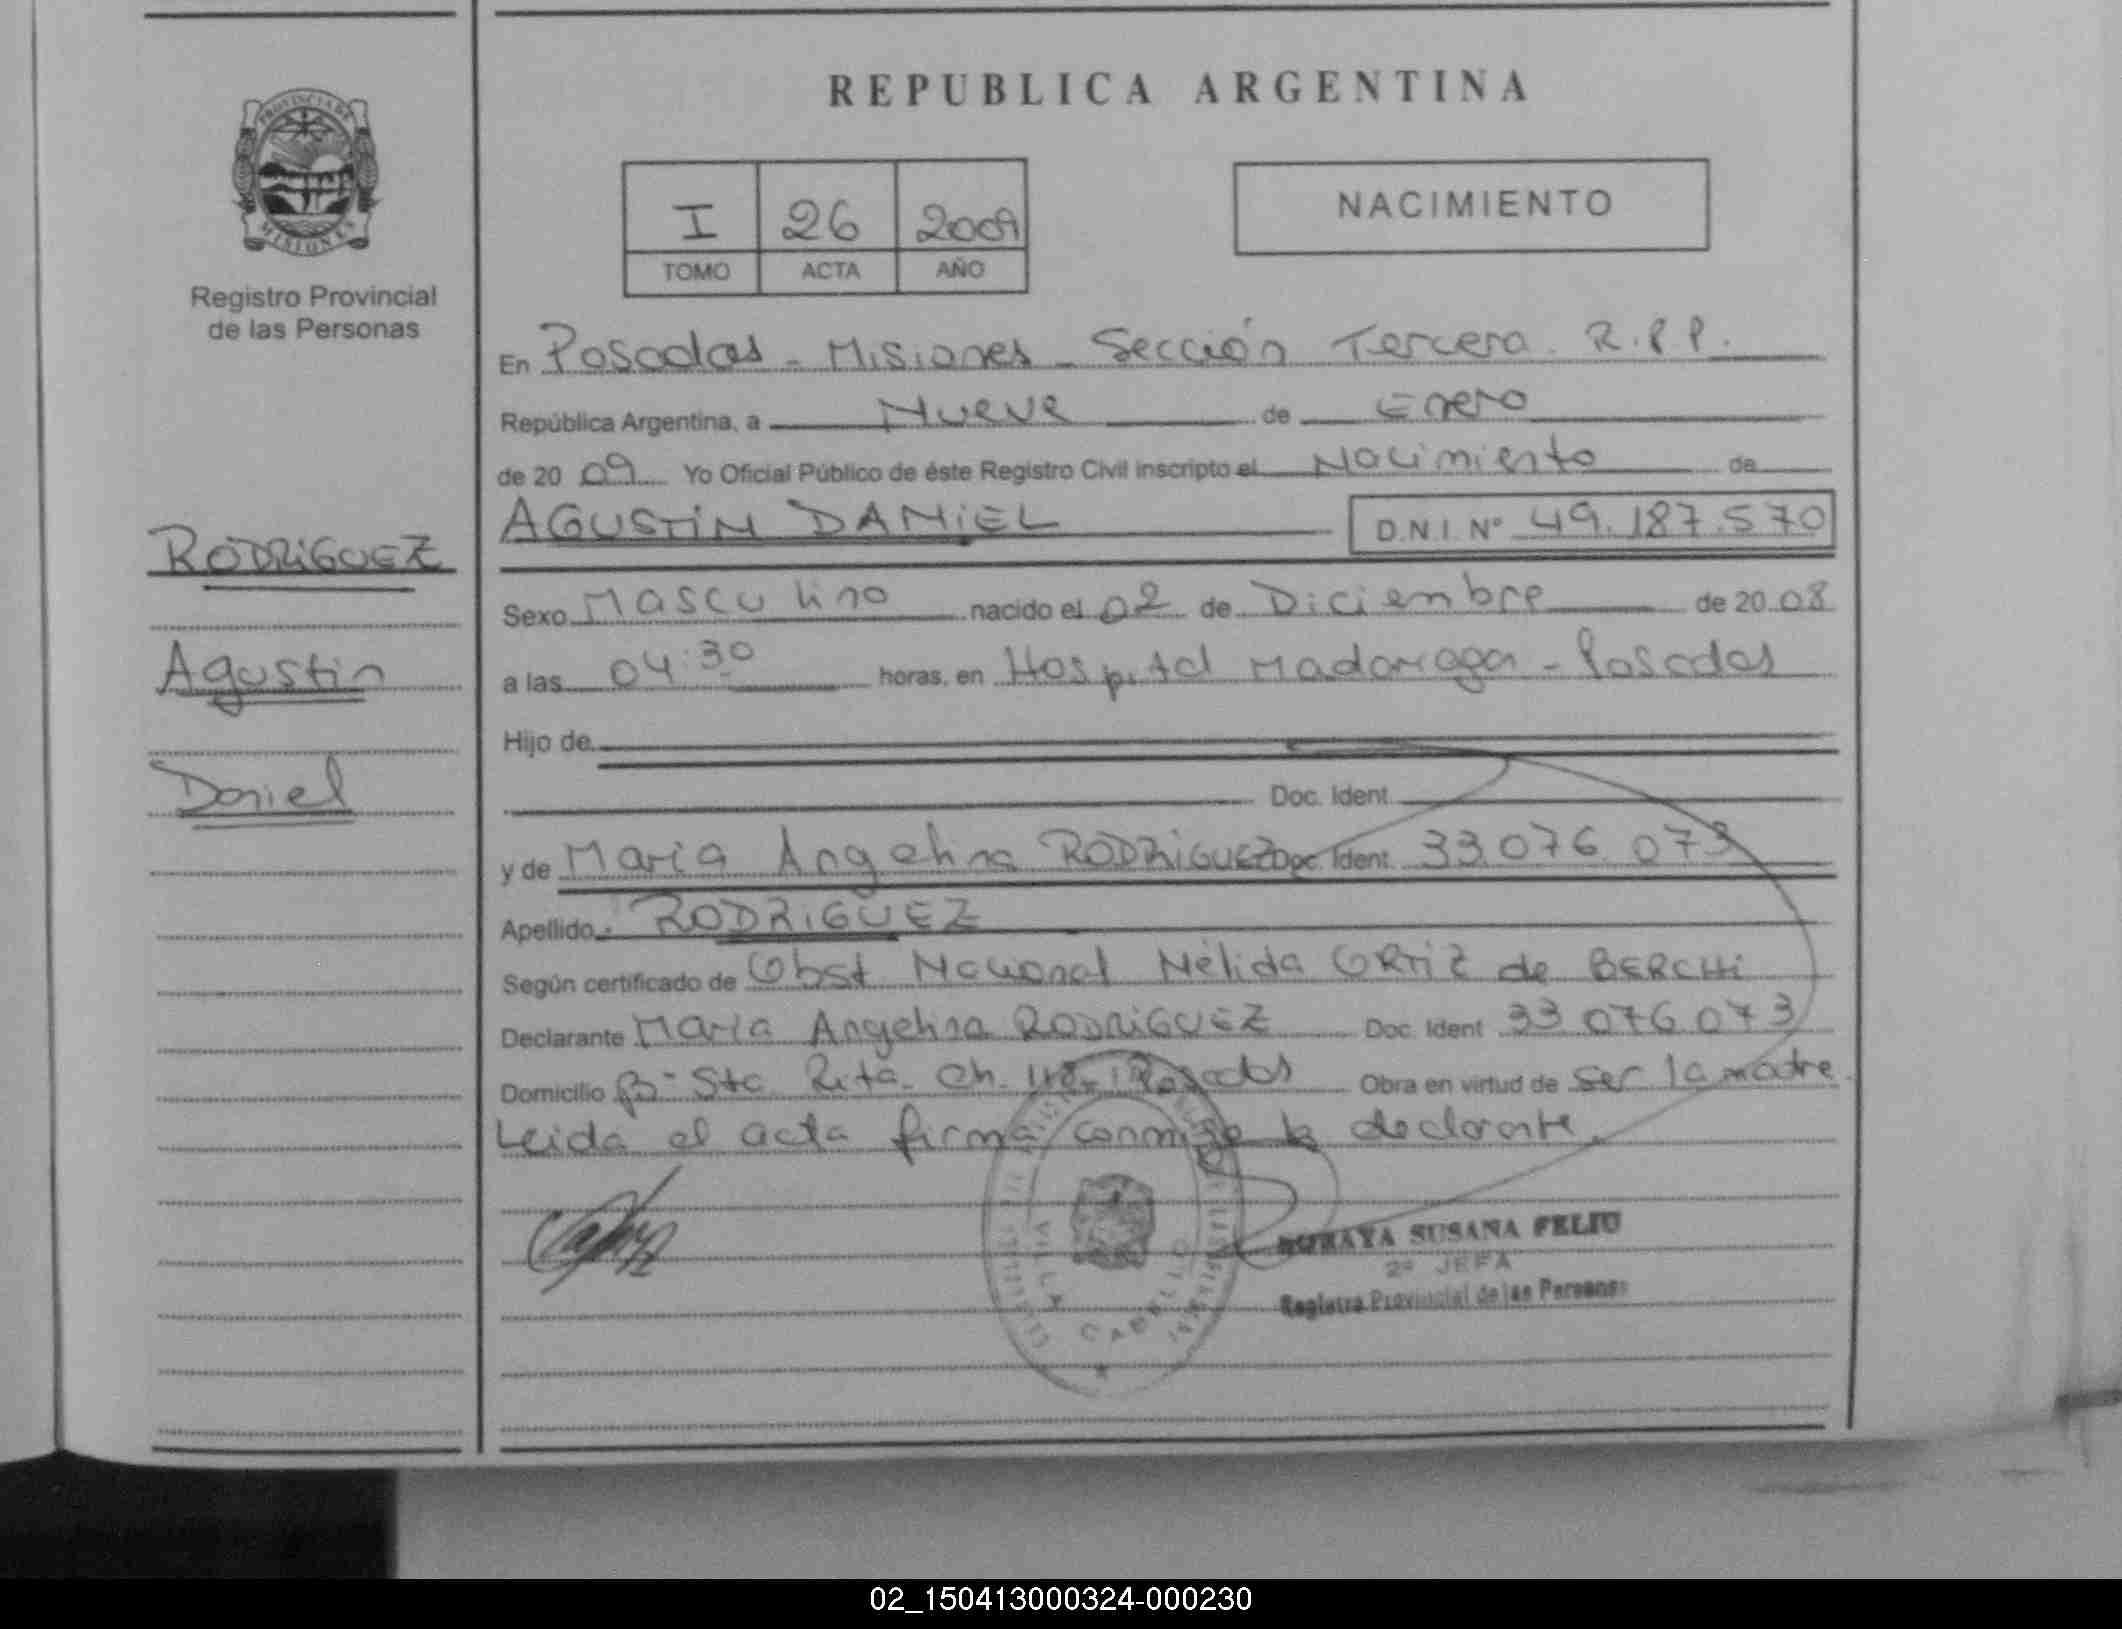 REPUBLICA ARGENTINA
PROVINCIA DE
MISIONES
Registro Provincial
de las Personas
I 26 2009
TOMO ACTA AÑO
NACIMIENTO
En Posadas - Misiones - Sección Tercera R.P.P.
República Argentina, a Nueve de Enero
de 20 09 Yo Oficial Público de éste Registro Civil inscripto el Nacimiento de
AGUSTIN DANIEL D.N.I. Nº 49.187.570
RODRIGUEZ
Agustin
Daniel
Sexo Masculino nacido el 02 de Diciembre de 20 08
a las 04:30 horas, en Hospital Madariaga - Posadas
Hijo de
Doc. Ident.
y de Maria Angelina RODRIGUEZ Doc. Ident. 33.076.073
Apellido: RODRIGUEZ
Según certificado de Obst Nacional Nélida ORTIZ de BERCHI
Declarante Maria Angelina RODRIGUEZ Doc. Ident 33 076 073
Domicilio Bº Sta Rita Ch. Posadas Obra en virtud de ser la madre.
Leida el acta firma conmigo la declarante.
VILLA CABELLO
SUSANA FELIU
2º JEFA
Registro Provincial de las Personas
02_150413000324-000230